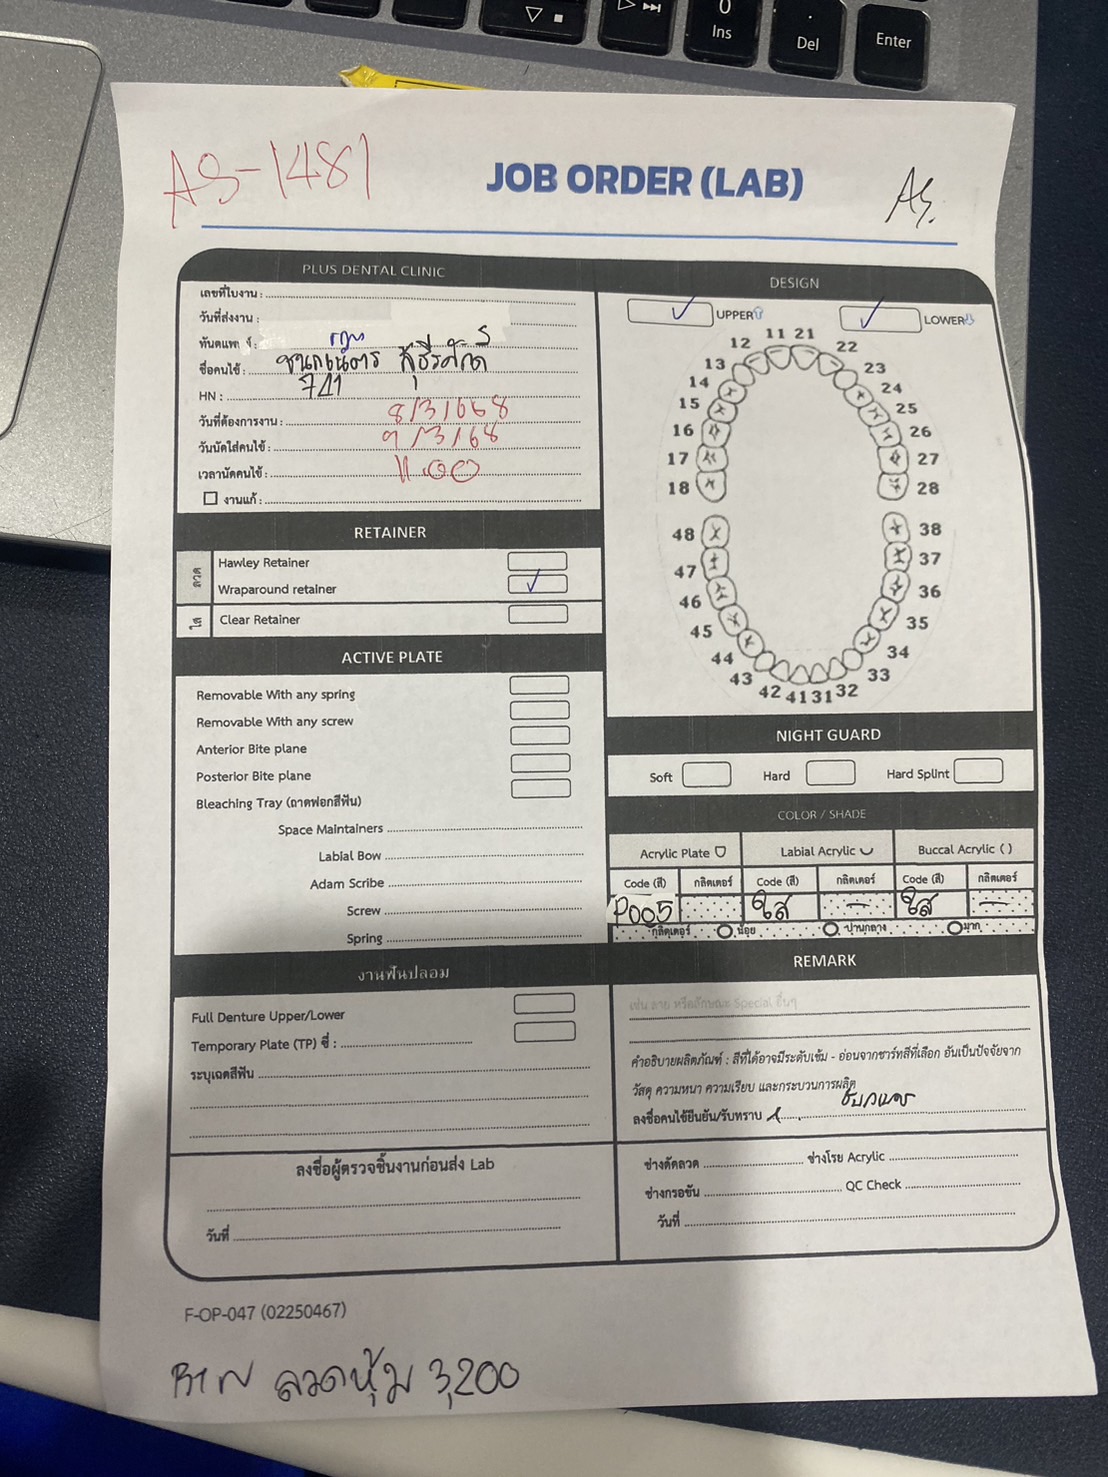 Ins
Del
Enter
AS-1481
JOB ORDER (LAB)
AS.
PLUS DENTAL CLINIC
เลขที่ใบงาน :
วันที่ส่งงาน :
ทันตแพท ์ :
ชื่อคนไข้ :
HN : 741
วันที่ต้องการงาน : 8/3/68
วันนัดใส่คนไข้ : 9/3/68
เวลานัดคนไข้ : 11.00
งานแก้ :
RETAINER
ลวด
Hawley Retainer
Wraparound retainer ✓
ใส
Clear Retainer
ACTIVE PLATE
Removable With any spring
Removable With any screw
Anterior Bite plane
Posterior Bite plane
Bleaching Tray (ถาดฟอกสีฟัน)
Space Maintainers
Labial Bow
Adam Scribe
Screw
Spring
งานฟันปลอม
Full Denture Upper/Lower
Temporary Plate (TP) ซี่ :
ระบุเฉดสีฟัน
ลงชื่อผู้ตรวจชิ้นงานก่อนส่ง Lab
วันที่
DESIGN
✓ UPPER
✓ LOWER
11 21
12 22
13 23
14 24
15 25
16 26
17 27
18 28
48 38
47 37
46 36
45 35
44 34
43 33
42 41 31 32
NIGHT GUARD
Soft Hard Hard Splint
COLOR / SHADE
Acrylic Plate Labial Acrylic Buccal Acrylic ( )
Code (สี) กลิตเตอร์ Code (สี) กลิตเตอร์ Code (สี) กลิตเตอร์
P005 ใส - ใส -
กลิตเตอร์ น้อย ปานกลาง มาก
REMARK
เช่น ลาย หรือลักษณะ Special อื่นๆ
คำอธิบายผลิตภัณฑ์ : สีที่ได้อาจมีระดับเข้ม - อ่อนจากชาร์ทสีที่เลือก อันเป็นปัจจัยจาก
วัสดุ ความหนา ความเรียบ และกระบวนการผลิต
ลงชื่อคนไข้ยืนยัน/รับทราบ
ช่างดัดลวด ช่างโรย Acrylic
ช่างกรอขัน QC Check
วันที่
F-OP-047 (02250467)
ลวดหุ้ม 3,200